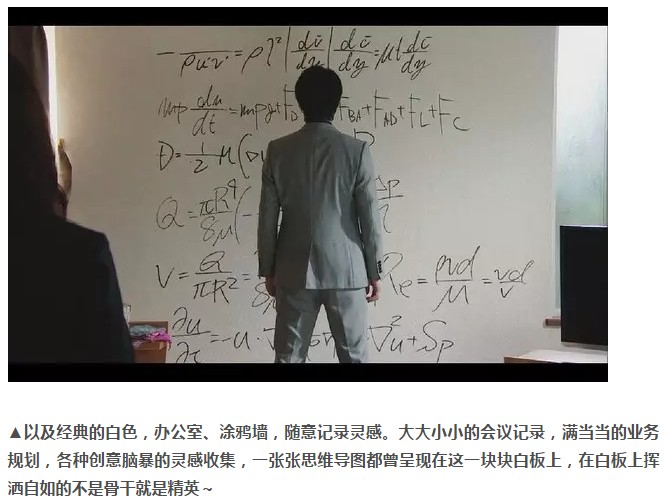 -ρu'v' = ρl² |dū/dy| dū/dy = μt dū/dy
mp du/dt = mpg + F_D F_BA + F_AD + F_L + F_C
Φ = 1/2 μ(
Q = πR⁴/8μ (-
V = Q/πR² = Re = ρvd/μ = vd/ν
∂u/∂t = -u·∇ ·∇²u + Sp
▲以及经典的白色，办公室、涂鸦墙，随意记录灵感。大大小小的会议记录，满当当的业务
规划，各种创意脑暴的灵感收集，一张张思维导图都曾呈现在这一块块白板上，在白板上挥
洒自如的不是骨干就是精英～